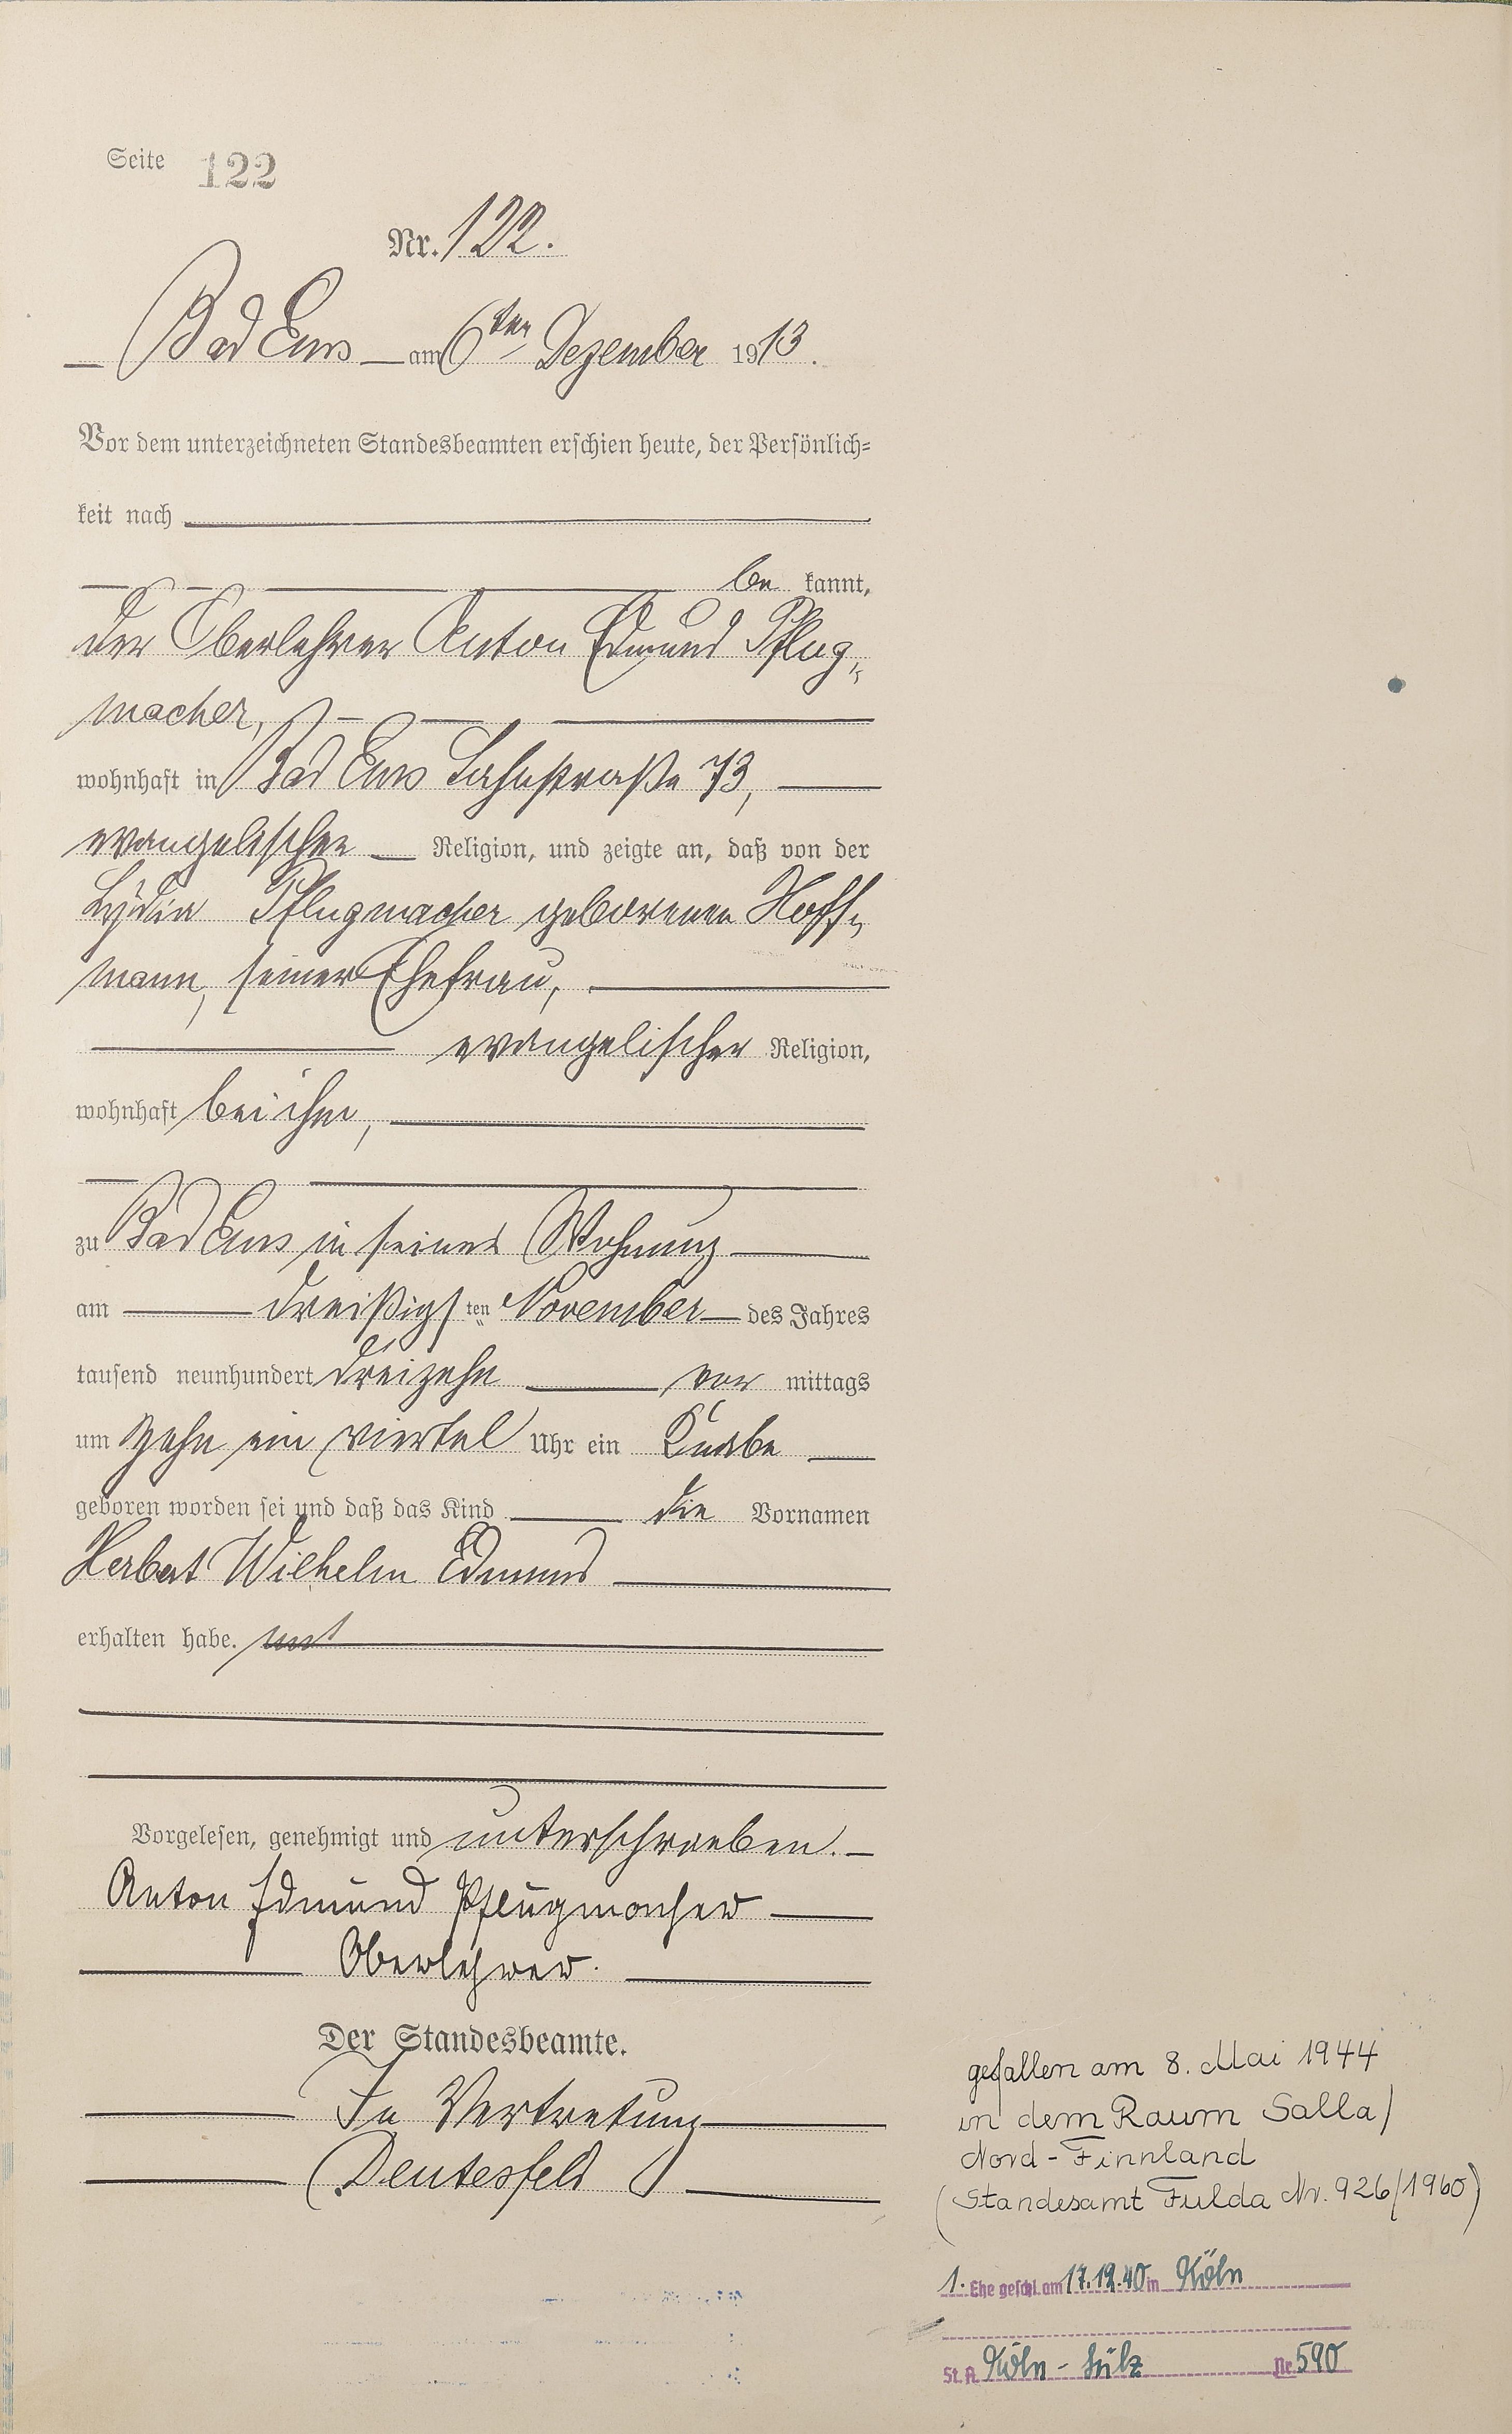 Seite 122
Nr. 122.
Bad Ems am 6ten Dezember 1913.
Vor dem unterzeichneten Standesbeamten erschien heute, der Persönlich=
keit nach
be kannt,
der Oberlehrer Anton Edmund Pflug„
macher,
wohnhaft in Bad Ems Lahnstraße 73,
evangelischer Religion, und zeigte an, daß von der
Lydia Pflugmacher geborenen Hoff„
mann, seiner Ehefrau,
evangelischer Religion,
wohnhaft bei ihm,
zu Bad Ems in seiner Wohnung
am dreißigsten November des Jahres
tausend neunhundert dreizehn vor mittags
um zehn ein viertel Uhr ein Knabe
geboren worden sei und daß das Kind die Vornamen
Herbert Wilhelm Edmund
erhalten habe.
Vorgelesen, genehmigt und unterschrieben.
Anton Edmund Pflugmacher
Oberlehrer.
Der Standesbeamte.
In Vertretung
Deutesfeld
gefallen am 8. Mai 1944
in dem Raum Salla/
Nord-Finnland
(Standesamt Fulda Nr. 926/1960)
1. Ehe geschl. am 17.12.40 in Köln
St. A. Köln-Sülz Nr. 590